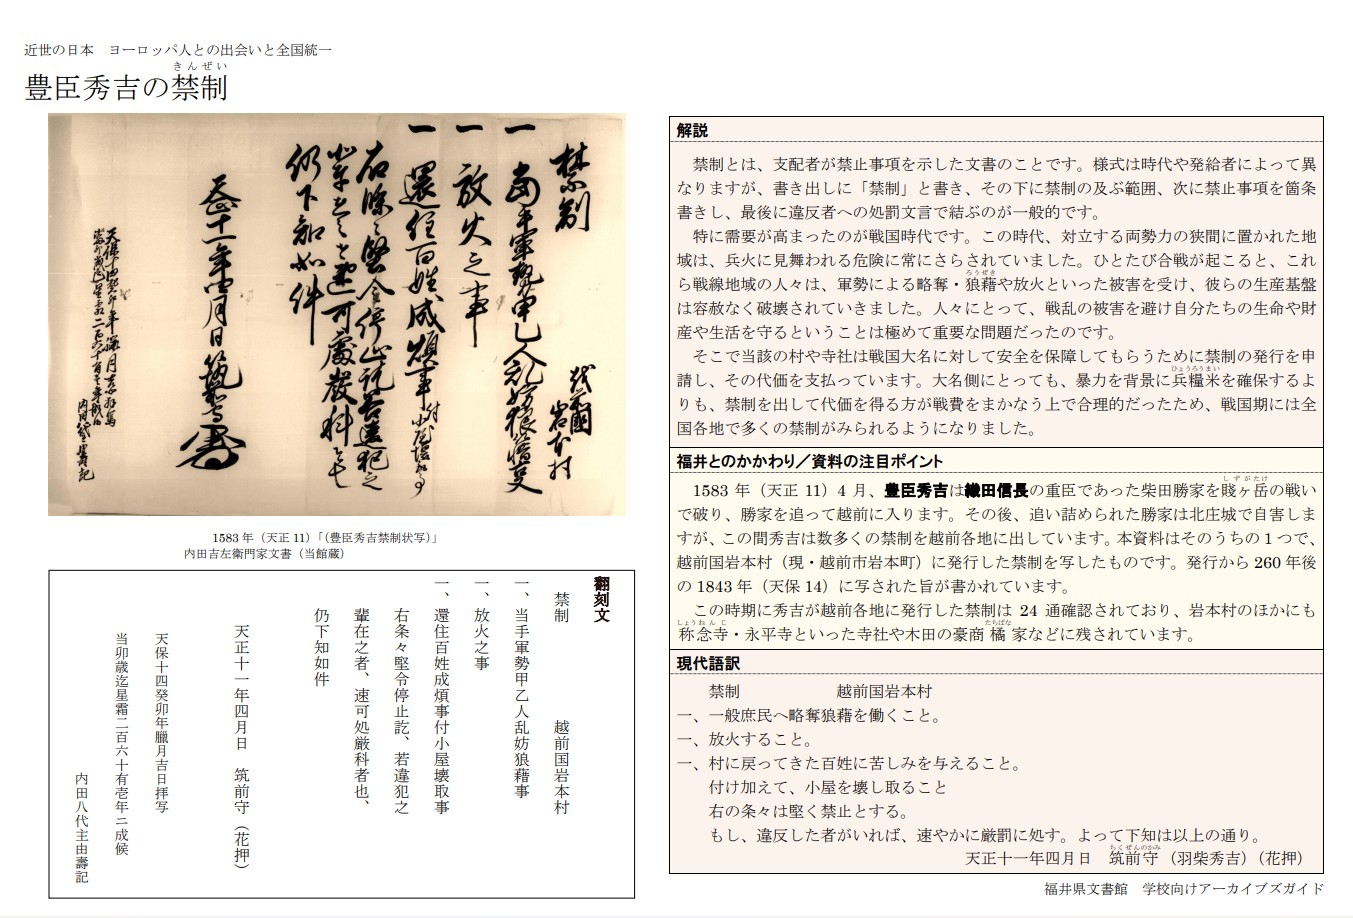 近世の日本　ヨーロッパ人との出会いと全国統一
きんぜい
豊臣秀吉の禁制
禁制
越前國
岩本村
一
当手軍勢甲乙人乱妨狼藉事
一
放火之事
一
還住百姓成煩事付小屋壊取事
右條々堅令停止訖若違犯之
輩在之者速可処厳科者也
仍下知如件
天正十一年四月日　筑前守
天保十四癸卯年臘月吉日拝写
当卯歳迄星霜二百六十有壱年ニ成候
内田八代主由壽記
1583 年（天正 11）「（豊臣秀吉禁制状写）」
内田吉左衛門家文書（当館蔵）
翻刻文
禁制　　　　　　越前国岩本村
一、当手軍勢甲乙人乱妨狼藉事
一、放火之事
一、還住百姓成煩事付小屋壊取事
右条々堅令停止訖、若違犯之
輩在之者、速可処厳科者也、
仍下知如件
天正十一年四月日　筑前守（花押）
天保十四癸卯年臘月吉日拝写
当卯歳迄星霜二百六十有壱年ニ成候
内田八代主由壽記
解説
禁制とは、支配者が禁止事項を示した文書のことです。様式は時代や発給者によって異
なりますが、書き出しに「禁制」と書き、その下に禁制の及ぶ範囲、次に禁止事項を箇条
書きし、最後に違反者への処罰文言で結ぶのが一般的です。
特に需要が高まったのが戦国時代です。この時代、対立する両勢力の狭間に置かれた地
域は、兵火に見舞われる危険に常にさらされていました。ひとたび合戦が起こると、これ
ろうぜき
ら戦線地域の人々は、軍勢による略奪・狼藉や放火といった被害を受け、彼らの生産基盤
は容赦なく破壊されていきました。人々にとって、戦乱の被害を避け自分たちの生命や財
産や生活を守るということは極めて重要な問題だったのです。
そこで当該の村や寺社は戦国大名に対して安全を保障してもらうために禁制の発行を申
ひょうろうまい
請し、その代価を支払っています。大名側にとっても、暴力を背景に兵糧米を確保するよ
りも、禁制を出して代価を得る方が戦費をまかなう上で合理的だったため、戦国期には全
国各地で多くの禁制がみられるようになりました。
福井とのかかわり／資料の注目ポイント
しずがたけ
1583 年（天正 11）4 月、豊臣秀吉は織田信長の重臣であった柴田勝家を賤ヶ岳の戦い
で破り、勝家を追って越前に入ります。その後、追い詰められた勝家は北庄城で自害しま
すが、この間秀吉は数多くの禁制を越前各地に出しています。本資料はそのうちの１つで、
越前国岩本村（現・越前市岩本町）に発行した禁制を写したものです。発行から 260 年後
の 1843 年（天保 14）に写された旨が書かれています。
この時期に秀吉が越前各地に発行した禁制は 24 通確認されており、岩本村のほかにも
しょうねんじ　たちばな
称念寺・永平寺といった寺社や木田の豪商 橘 家などに残されています。
現代語訳
禁制　　　　　　越前国岩本村
一、一般庶民へ略奪狼藉を働くこと。
一、放火すること。
一、村に戻ってきた百姓に苦しみを与えること。
付け加えて、小屋を壊し取ること
右の条々は堅く禁止とする。
もし、違反した者がいれば、速やかに厳罰に処す。よって下知は以上の通り。
ちくぜんのかみ
天正十一年四月日　筑前守（羽柴秀吉）（花押）
福井県文書館　学校向けアーカイブズガイド